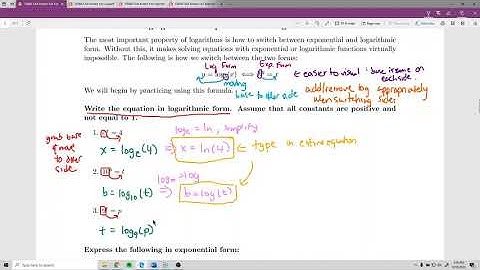 The most important property of logarithms is how to switch between exponential and logarithmic
form. Without this, it makes solving equations with exponential or logarithmic functions virtually
impossible. The following is how we switch between the two forms:
Log Form
Exp. Form
easier to visual: base is same on
each side
moving
base to other side
We will begin by practicing using this formula.
add/remove log appropriately
when switching sides
Write the equation in logarithmic form. Assume that all constants are positive and
not equal to 1.
grab base
& move
to other
side
1.
= 4
log_e = ln, simplify
x = log_e(4) ⇒ x = ln(4) ← type in entire equation
2.
= t
log_10 = log
b = log_10(t) ⇒ b = log(t)
3.
= p
t = log_9(p)
Express the following in exponential form: